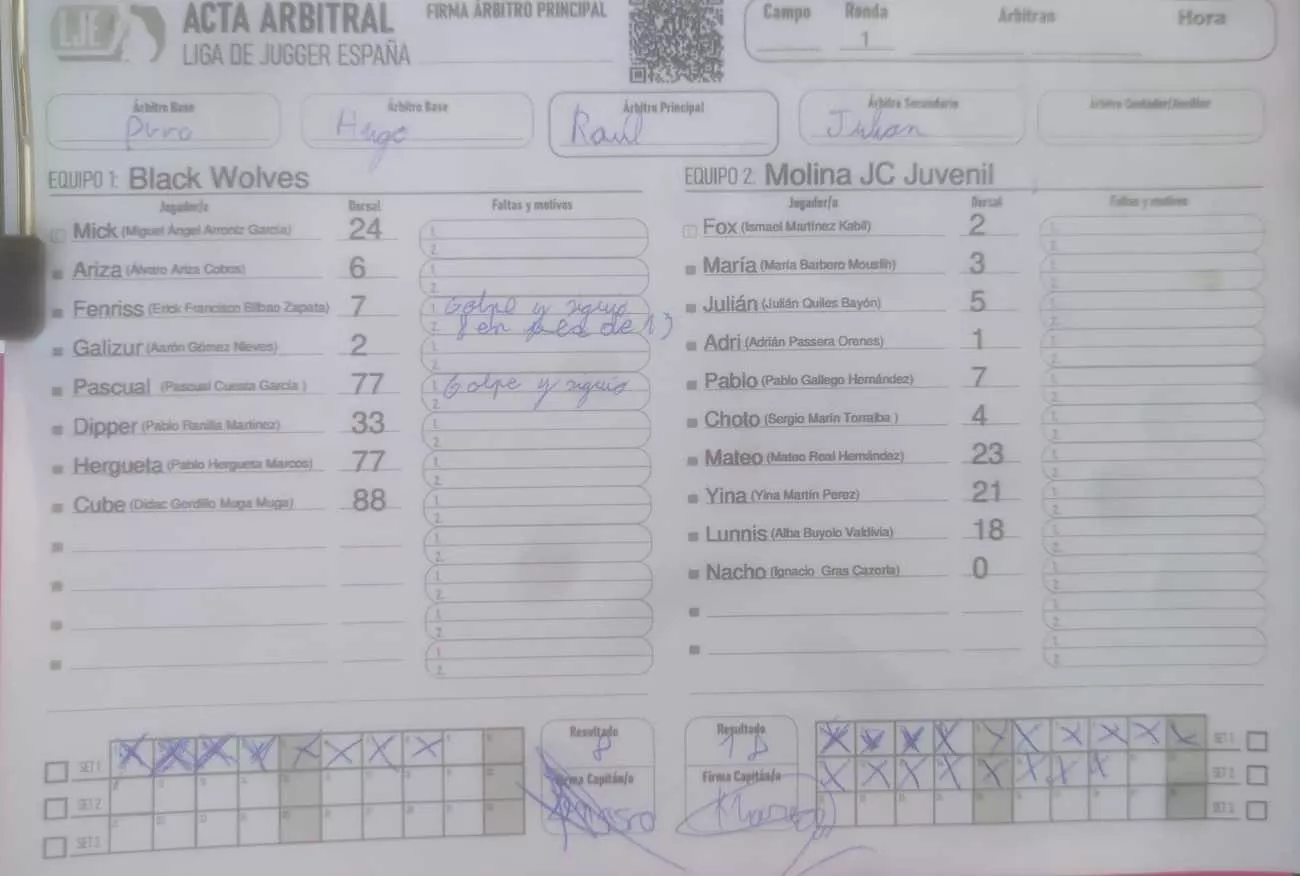 LJE ACTA ARBITRAL FIRMA ÁRBITRO PRINCIPAL
LIGA DE JUGGER ESPAÑA
Campo Ronda Árbitran Hora
1
Árbitro Base Árbitro Base Árbitro Principal Árbitro Secundario Árbitro Contador/Auxiliar
Puro Hugo Raúl Julian
EQUIPO 1: Black Wolves
Jugador/a Dorsal Faltas y motivos
Mick (Miguel Ángel Arroniz García) 24 1.
2.
Ariza (Álvaro Ariza Cobos) 6 1.
2.
Fenriss (Erick Francisco Bilbao Zapata) 7 1. Golpe y siguio
2. 8 en vez de 13
Galizur (Aarón Gómez Nieves) 2 1.
2.
Pascual (Pascual Cuesta García ) 77 1. Golpe y siguio
2.
Dipper (Pablo Ranilla Martínez) 33 1.
2.
Hergueta (Pablo Hergueta Marcos) 77 1.
2.
Cube (Didac Gordillo Muga Muga) 88 1.
2.
1.
2.
1.
2.
1.
2.
1.
2.
EQUIPO 2: Molina JC Juvenil
Jugador/a Dorsal Faltas y motivos
Fox (Ismael Martínez Kabil) 2 1.
2.
María (María Barbero Mouslih) 3 1.
2.
Julián (Julián Quiles Bayón) 5 1.
2.
Adri (Adrián Passera Orenes) 1 1.
2.
Pablo (Pablo Gallego Hernández) 7 1.
2.
Choto (Sergio Marín Torralba ) 4 1.
2.
Mateo (Mateo Real Hernández) 23 1.
2.
Yina (Yina Martín Perez) 21 1.
2.
Lunnis (Alba Buyolo Valdivia) 18 1.
2.
Nacho (Ignacio Gras Cazorla) 0 1.
2.
1.
2.
1.
2.
SET 1 X X X X X X X X
SET 2
SET 3
Resultado
8
Firma Capitán/a
Resultado
18
Firma Capitán/a
X X X X X X X X X X SET 1
X X X X X X X X SET 2
SET 3